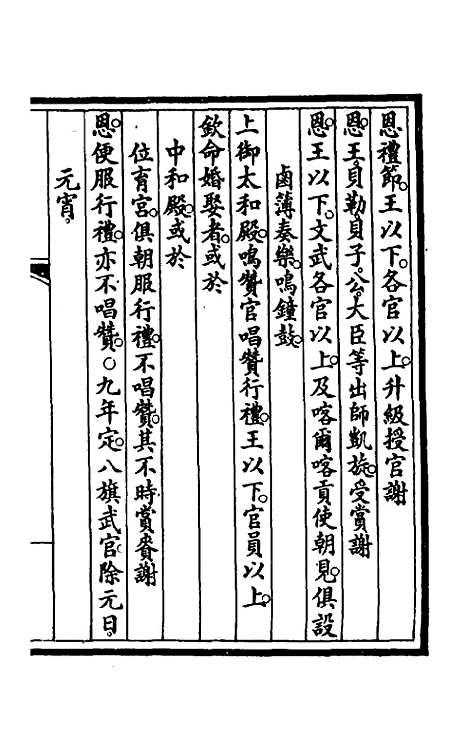 恩禮節。王以下。各官以上。升級授官謝
恩。王。貝勒。貝子。公。大臣等出師凱旋。受賞謝
恩。王以下。文武各官以上。及喀爾喀貢使朝見。俱設
鹵薄奏樂。鳴鐘鼓。
上御太和殿。鳴贊官唱贊行禮。王以下。官員以上。
欽命婚娶者。或於
中和殿。或於
位育宮。俱朝服行禮。不唱贊。其不時賞賚謝
恩。便服行禮。亦不唱贊。○九年定。八旗武官。除元日。
元宵。